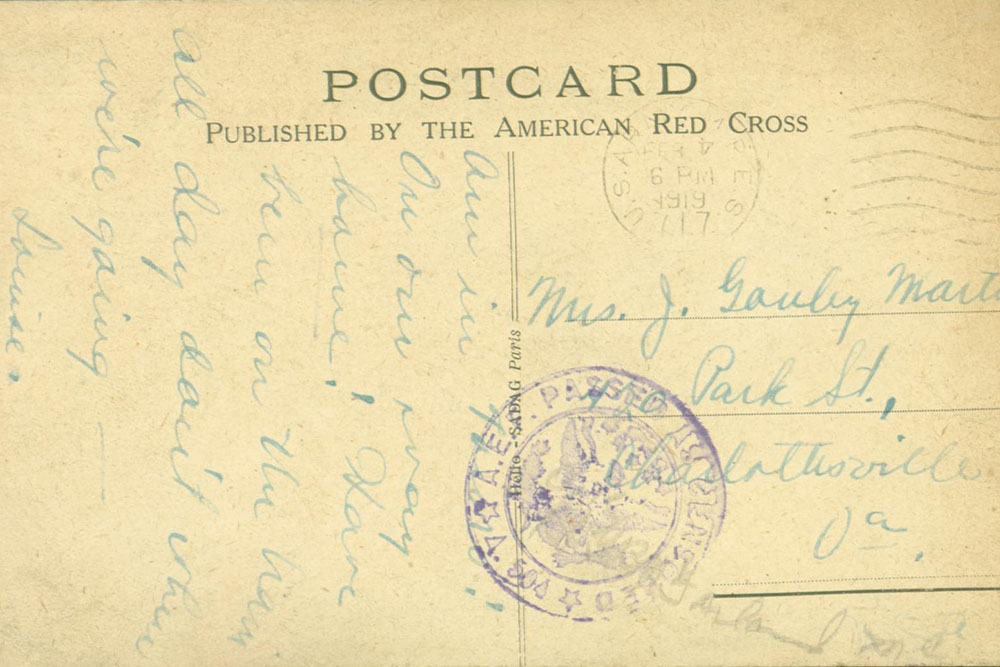 POSTCARD
PUBLISHED BY THE AMERICAN RED CROSS
FEB
6 PM
1919
717
Am in !!
On our way
home! Have
been on the
all day don't
we're going —
Louise.
Hélio - SADAG Paris
Mrs. J.
Park St.,
Charlottesville
Va.
A.E.F. PASSED AS CENSORED